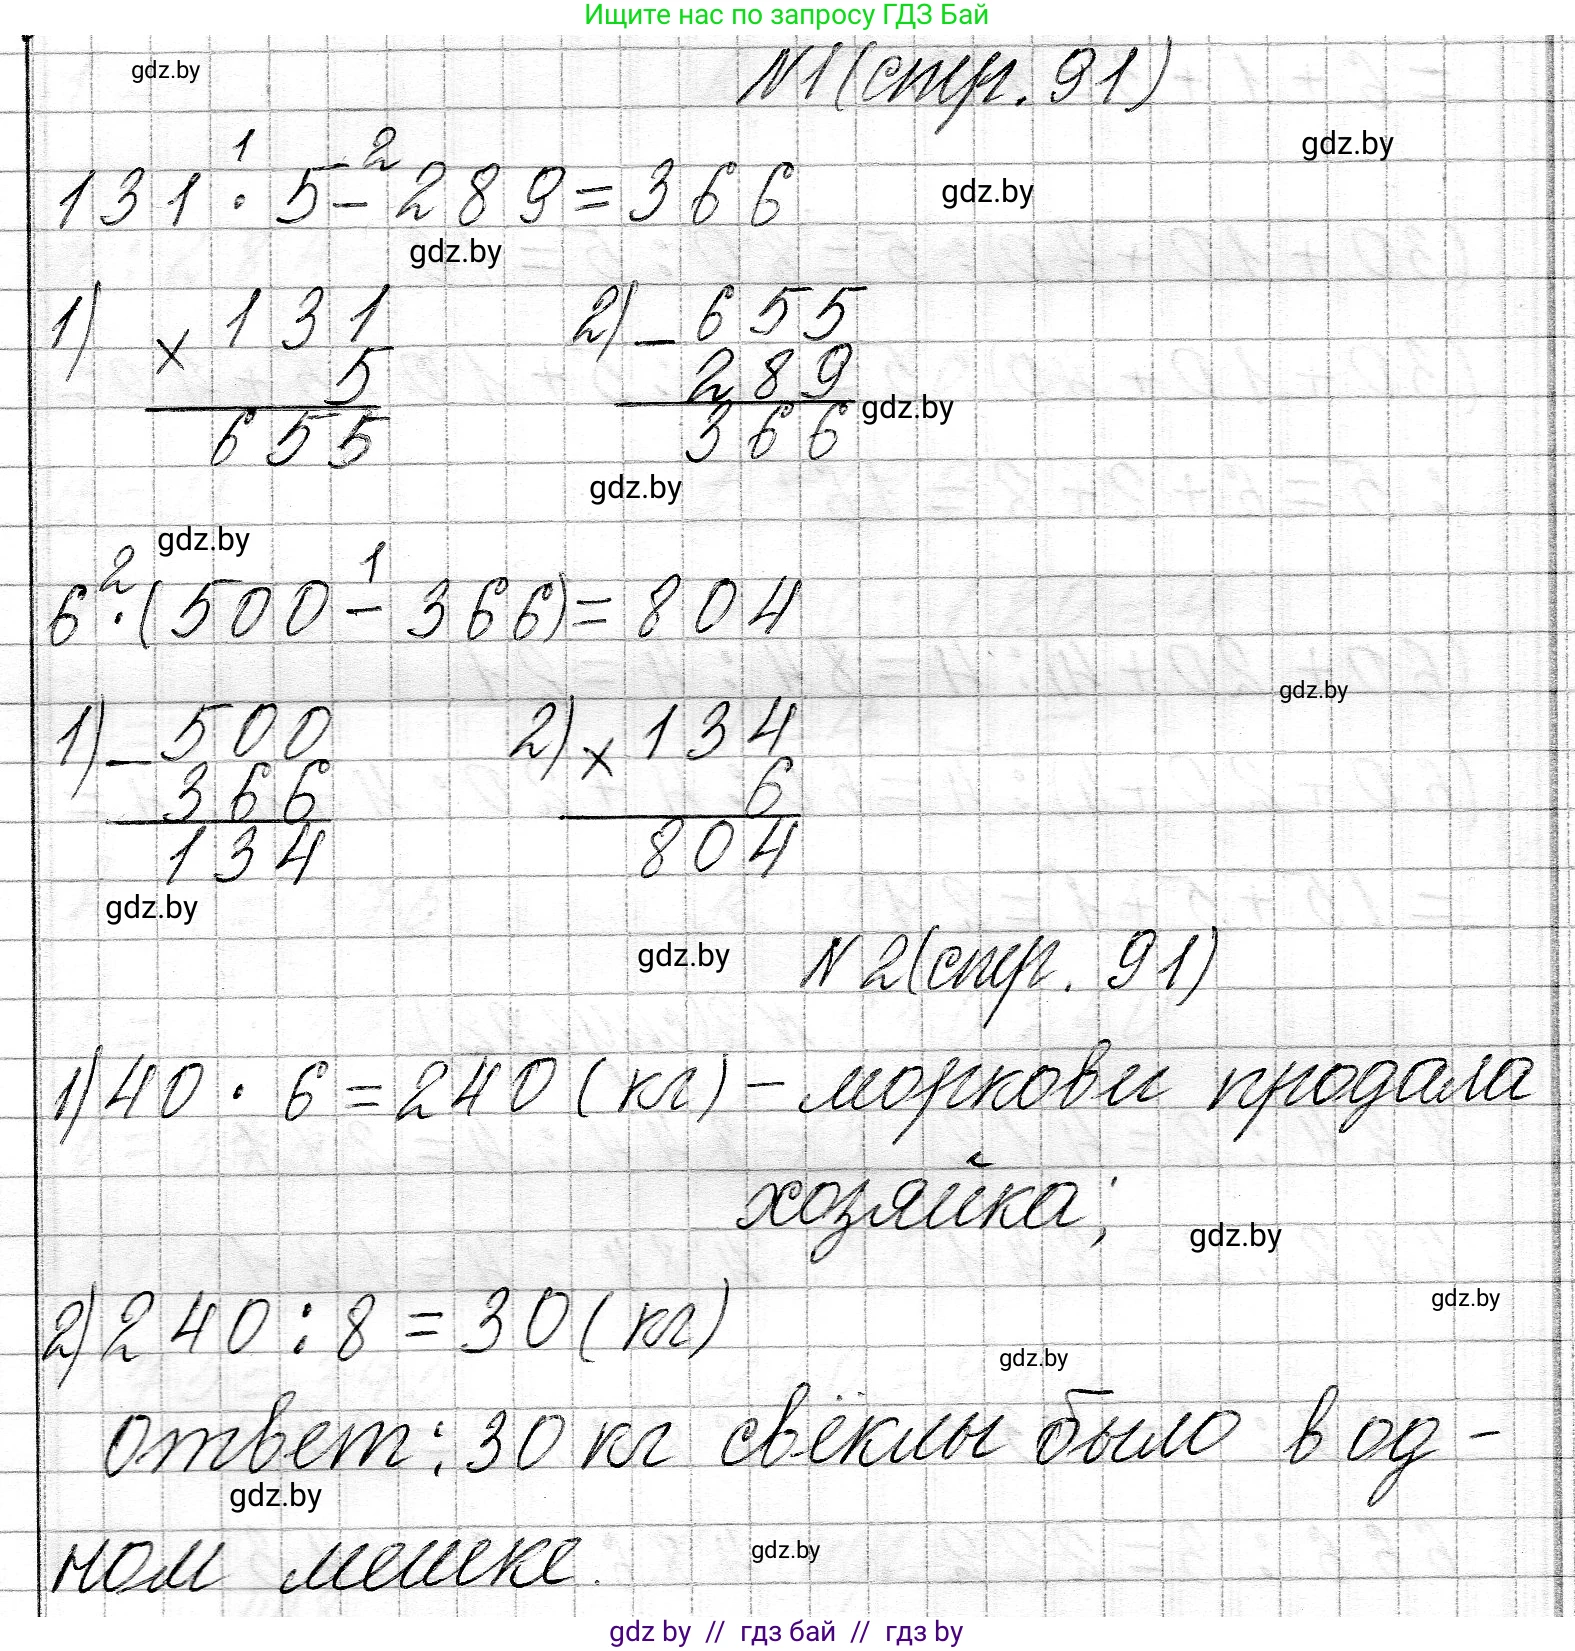 Ищите нас по запросу ГДЗ Бай
gdz.by
N1 (стр. 91)
gdz.by
1 2
131 · 5 - 289 = 366
gdz.by
gdz.by
1) × 131 2) - 655
5 289
655 366
gdz.by
gdz.by
gdz.by
2 1
6 · (500 - 366) = 804
gdz.by
1) - 500 2) × 134
366 6
134 804
gdz.by
gdz.by
N 2 (стр. 91)
1) 40 · 6 = 240 (кг) - моркови продала
хозяйка;
gdz.by
gdz.by
2) 240 : 8 = 30 (кг)
gdz.by
ответ: 30 кг свёклы было в од-
gdz.by
ном мешке.
gdz.by
gdz by // гдз бай // гдз by